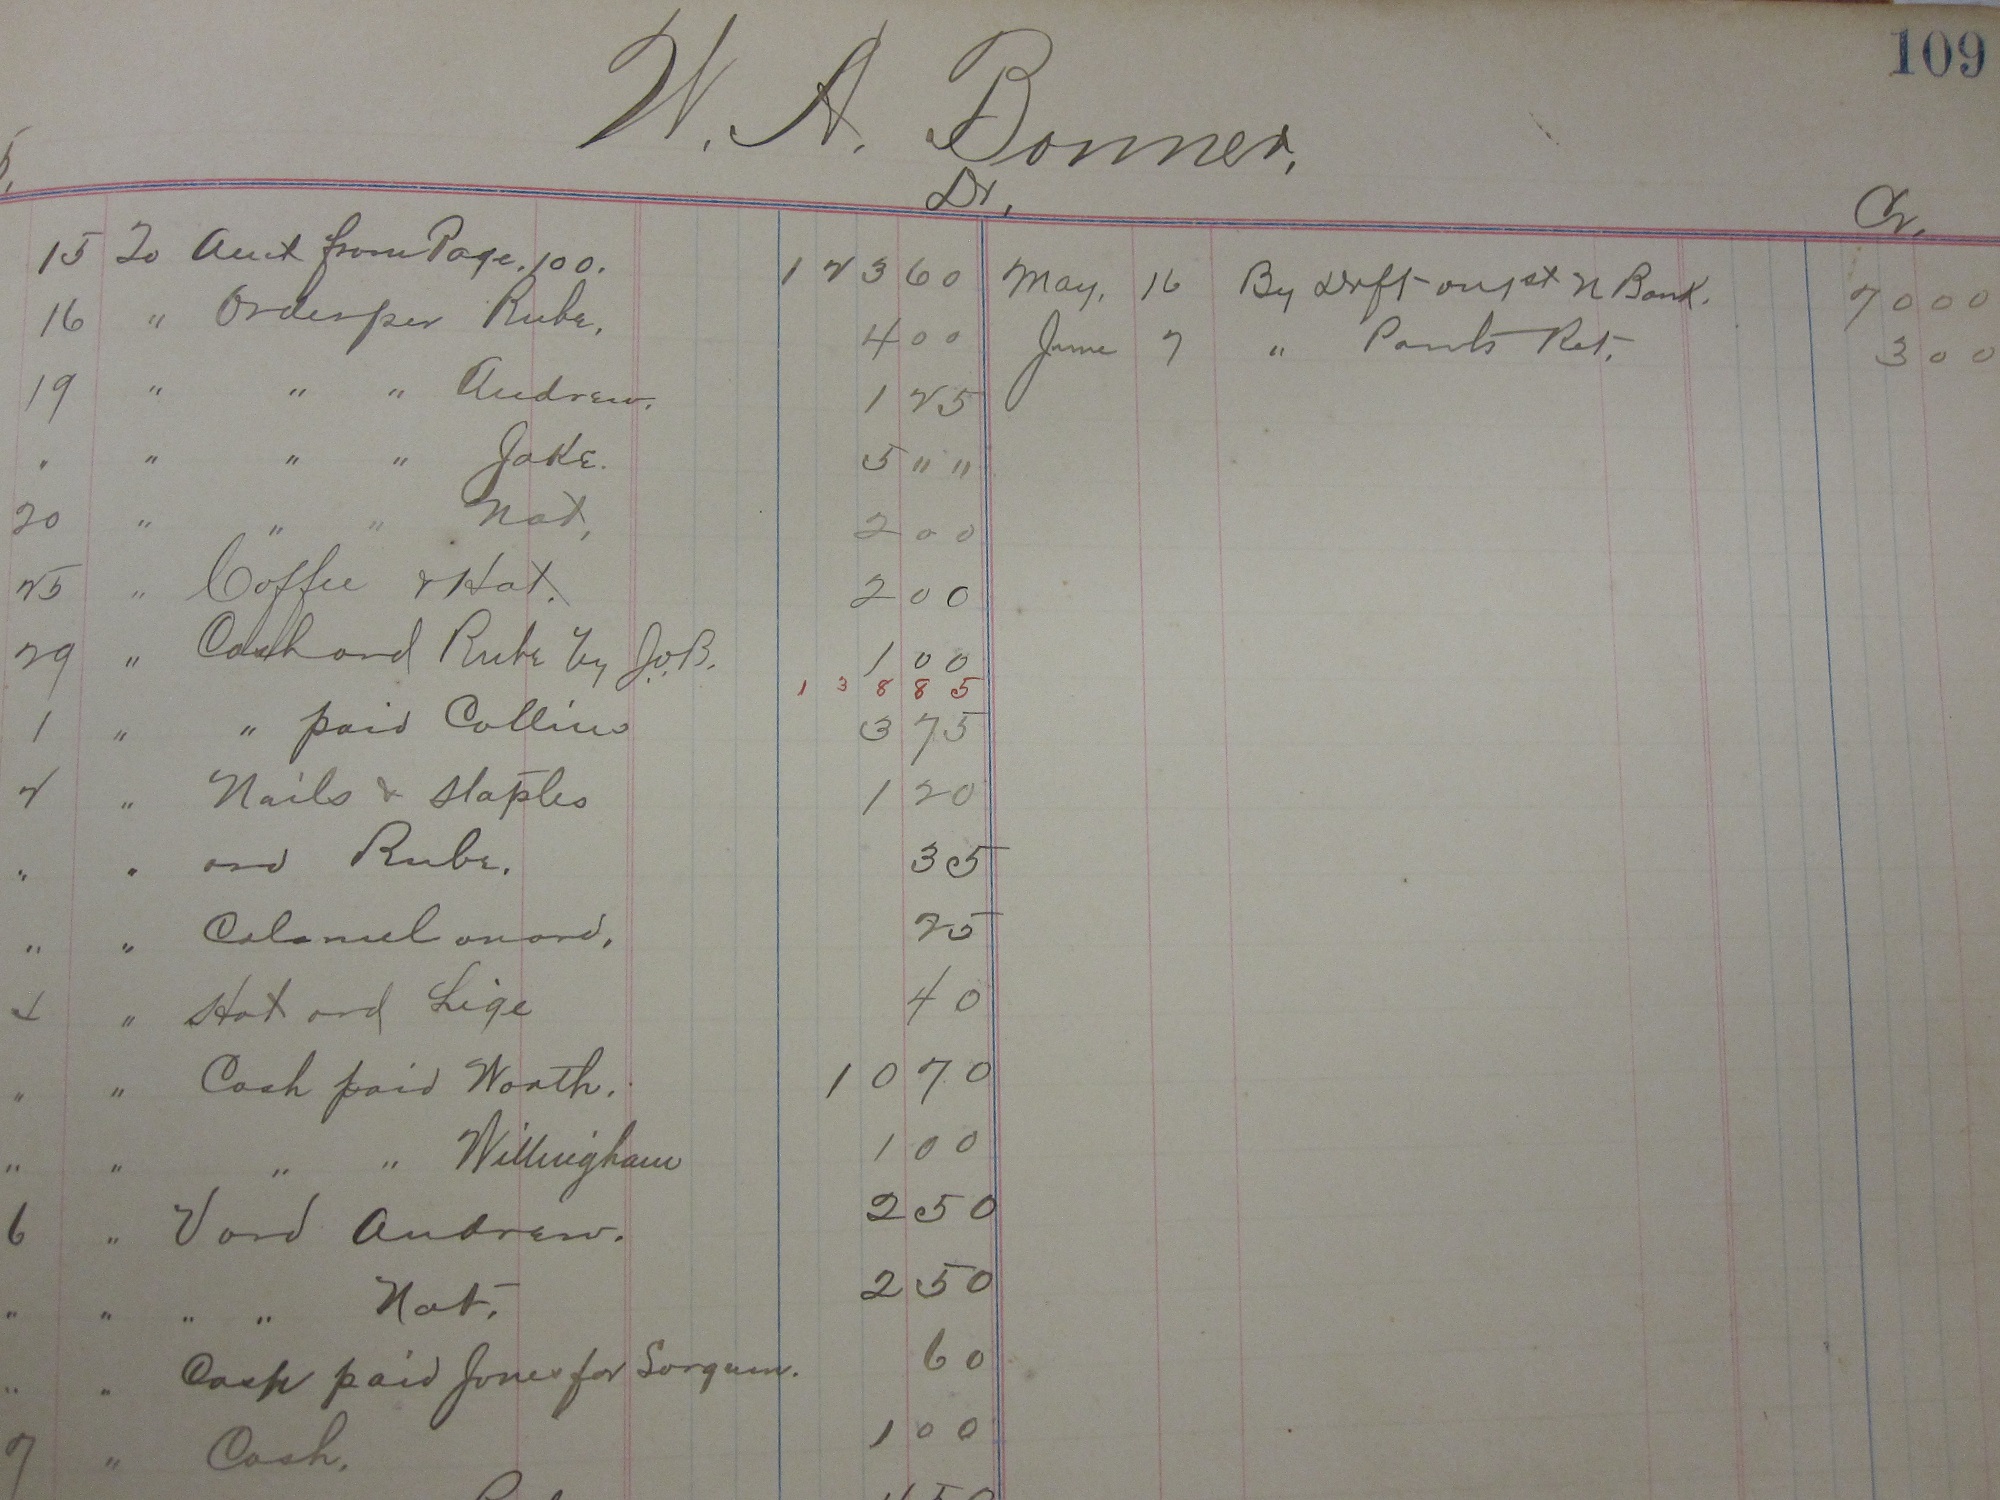 109
W. A. Bonner,
Dr. Cr.
15 To Amt from Page. 100. 1 2 3 60 May, 16 By Drft on 1st N Bank. 70 00
16 " Order per Rube. 4 00 June 7 " Pants Ret. 3 00
19 " " " Andrew. 1 25
" " " " Jake. 5 " "
20 " " " Nat, 2 00
25 " Coffee & Hat. 2 00
29 " Cash ord Rube by J.B. 1 00
1 3 8 8 5
1 " " paid Collins 3 75
2 " Nails & Staples 1 20
" " ord Rube. 35
" " Calomel on ord, 25
4 " Hat ord Lige 40
" " Cash paid Worth. 10 70
" " " " Willingham 1 00
6 " ord Andrew. 2 50
" " " " Nat. 2 50
" " Cash paid Jones for Sorgum. 60
7 " Cash. 1 00